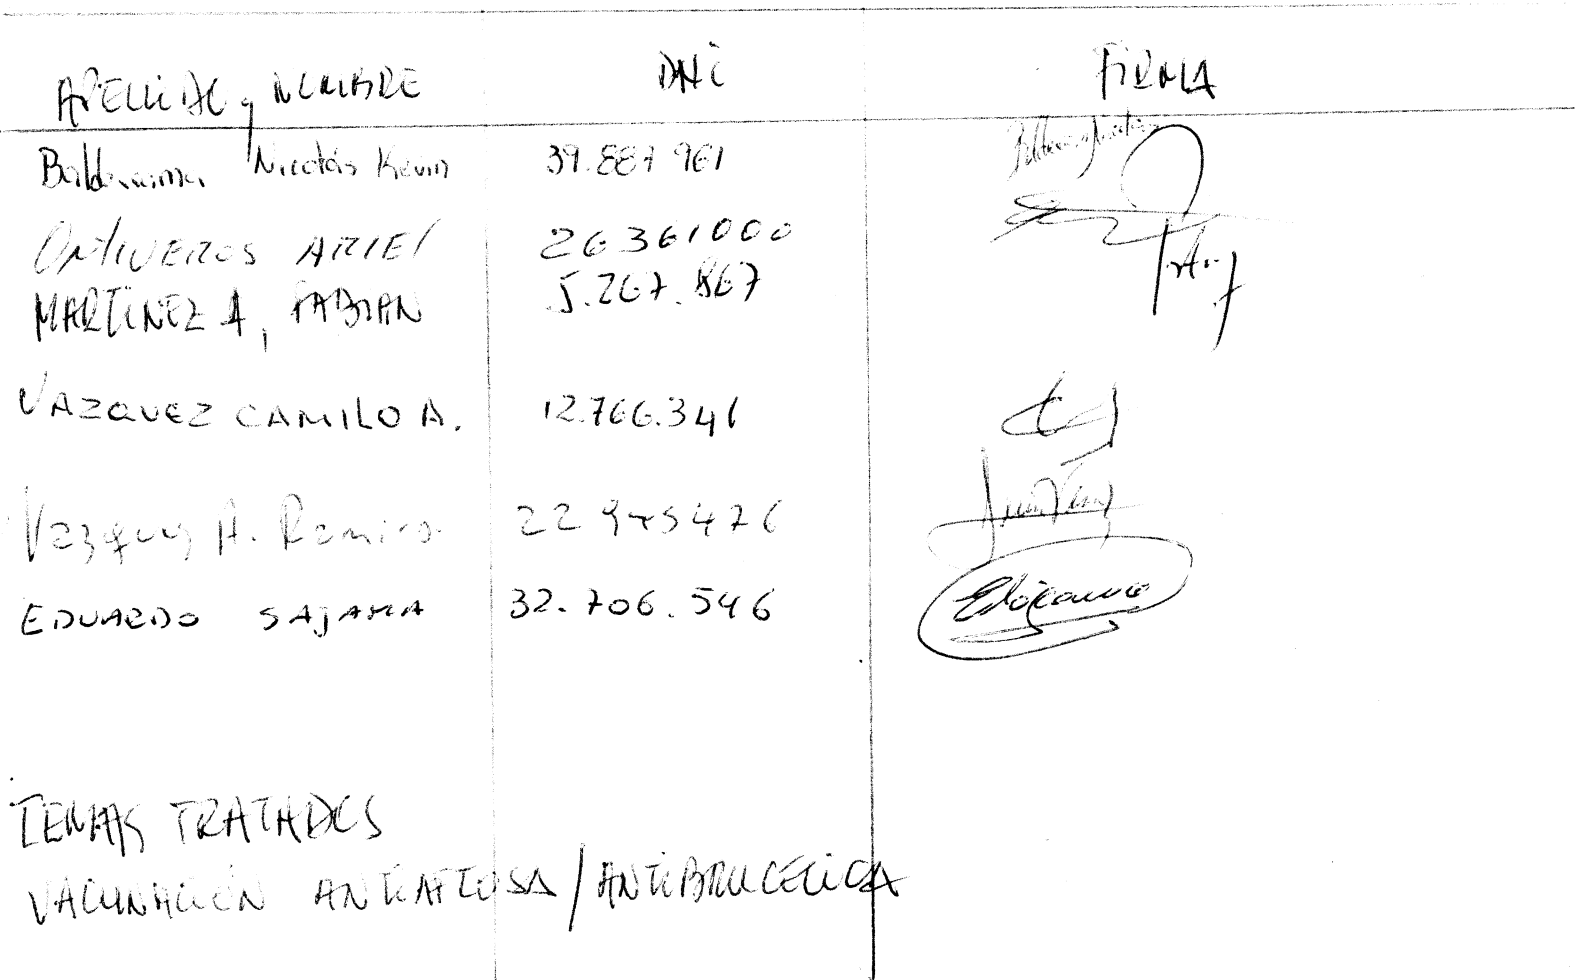 APELLIDO y NOMBRE DNI FIRMA
Nicolás Kevin 39.887 961
ONTIVEROS ARIEL 26361000
MARTINEZ A, FABIAN 5.267.867
VAZQUEZ CAMILO A. 12.766.341
Vazquez A. Ramiro 22945476
EDUARDO SAJAMA 32.706.546
TEMAS TRATADOS
VACUNACIÓN ANTIAFTOSA / ANTIBRUCELICA